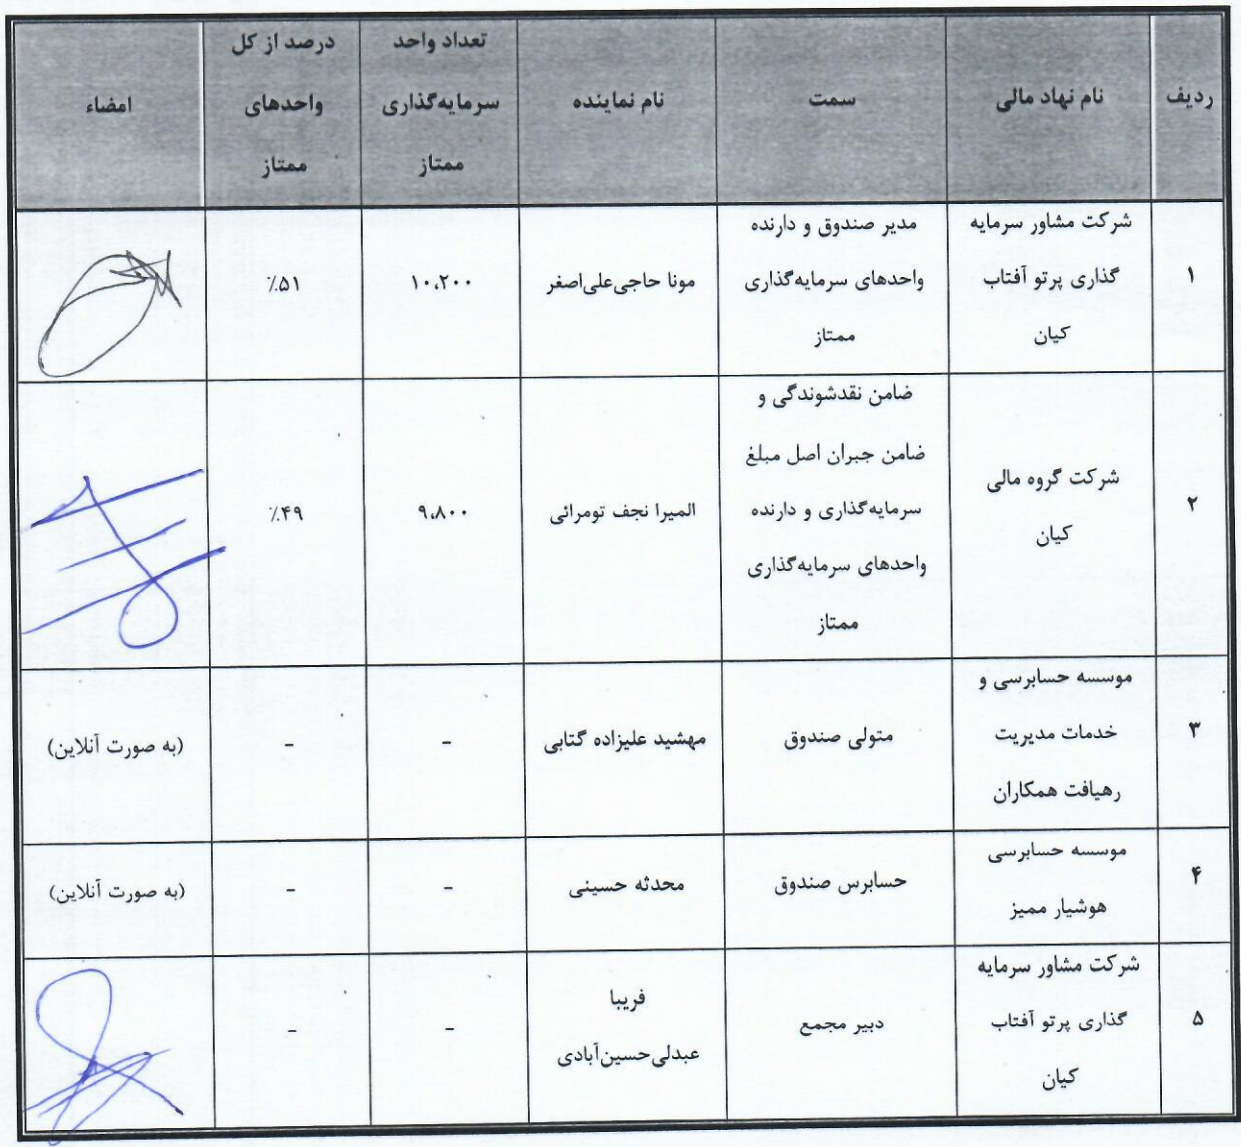 ردیف
نام نهاد مالی
سمت
نام نماینده
تعداد واحد
سرمایه‌گذاری
ممتاز
درصد از کل
واحدهای
ممتاز
امضاء
۱
شرکت مشاور سرمایه
گذاری پرتو آفتاب
کیان
مدیر صندوق و دارنده
واحدهای سرمایه‌گذاری
ممتاز
مونا حاجی‌علی‌اصغر
۱۰،۲۰۰
٪۵۱
۲
شرکت گروه مالی
کیان
ضامن نقدشوندگی و
ضامن جبران اصل مبلغ
سرمایه‌گذاری و دارنده
واحدهای سرمایه‌گذاری
ممتاز
المیرا نجف تومرائی
۹،۸۰۰
٪۴۹
۳
موسسه حسابرسی و
خدمات مدیریت
رهیافت همکاران
متولی صندوق
مهشید علیزاده گتابی
-
-
(به صورت آنلاین)
۴
موسسه حسابرسی
هوشیار ممیز
حسابرس صندوق
محدثه حسینی
-
-
(به صورت آنلاین)
۵
شرکت مشاور سرمایه
گذاری پرتو آفتاب
کیان
دبیر مجمع
فریبا
عبدلی‌حسین‌آبادی
-
-